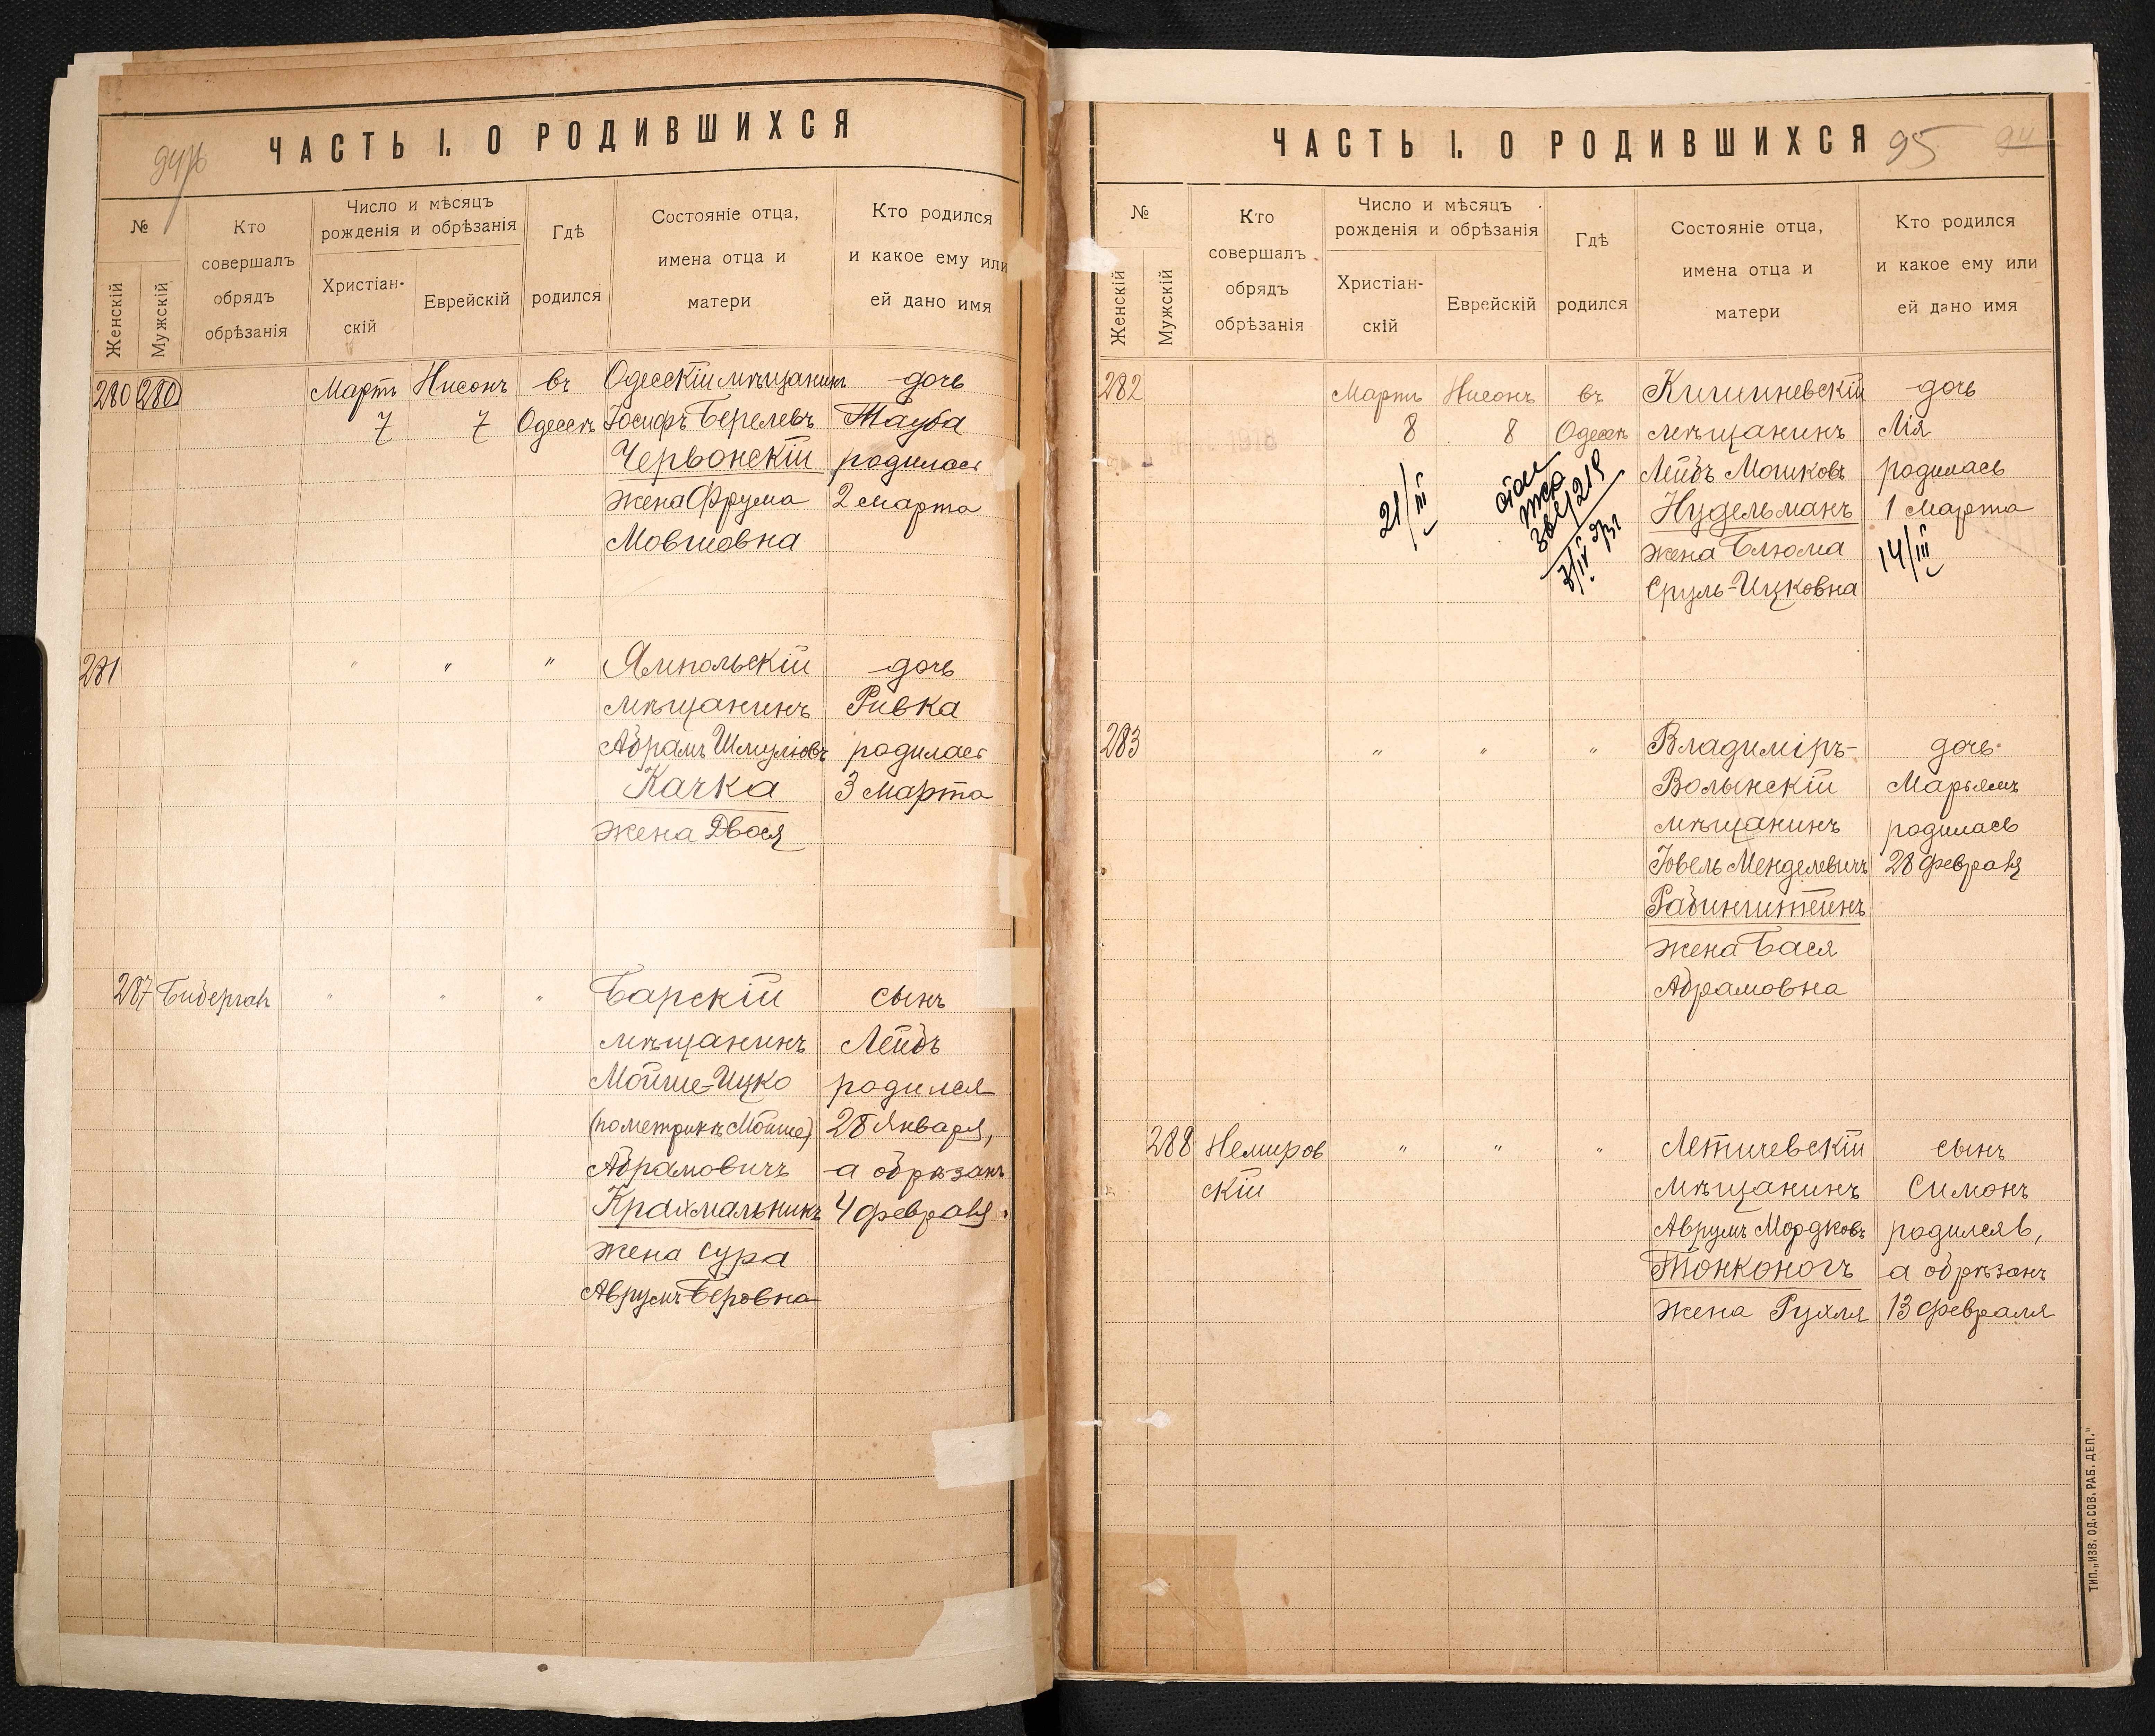 ЧАСТЬ I. О РОДИВШИХСЯ
№
Женскій
Мужскій
Кто
совершалъ
обрядъ
обрѣзанія
Число и мѣсяцъ
рожденія и обрѣзанія
Христіан-
скій
Еврейскій
Гдѣ
родился
Состояніе отца,
имена отца и
матери
Кто родился
и какое ему или
ей дано имя
280 280 Мартъ Нисонъ въ Одесскій мѣщанинъ дочь
7 7 Одессѣ Іосифъ Берелевъ Тауба
Червонскій родилась
жена Фрума 2 Марта
Мовшовна
281 " " " Ямпольскій дочь
мѣщанинъ Ривка
Абрамъ Шмулювъ родилась
Качка 3 Марта
жена Двося
287 Бибергал " " " Барскій сынъ
мѣщанинъ Лейбъ
Мойше-Ицко родился
(по метрикѣ Мойше) 28 Января,
Абрамовичъ а обрѣзанъ
Крахмальникъ 4 февраля.
жена Сура
Аврумъ-Беровна
ЧАСТЬ I. О РОДИВШИХСЯ 95 94
№
Женскій
Мужскій
Кто
совершалъ
обрядъ
обрѣзанія
Число и мѣсяцъ
рожденія и обрѣзанія
Христіан-
скій
Еврейскій
Гдѣ
родился
Состояніе отца,
имена отца и
матери
Кто родился
и какое ему или
ей дано имя
282 Мартъ Нисонъ въ Кишиневскій дочь
8 8 Одессѣ мѣщанинъ Лія
Лейбъ Мошковъ родилась
Нудельманъ 1 Марта
жена Блюма
Сруль-Ицковна
21/III
14/III
283 " " " Владиміръ- дочь
Волынскій Марьямъ
мѣщанинъ родилась
Іовель Менделевичъ 28 февраля
Рабинштейнъ
жена Бася
Абрамовна
288 Немиров " " " Летичевскій сынъ
скій мѣщанинъ Симонъ
Аврумъ Мордковъ родился 6,
Тонконогъ а обрѣзанъ
жена Рухля 13 февраля
ТИП. „ИЗВ. ОД. СОВ. РАБ. ДЕП."